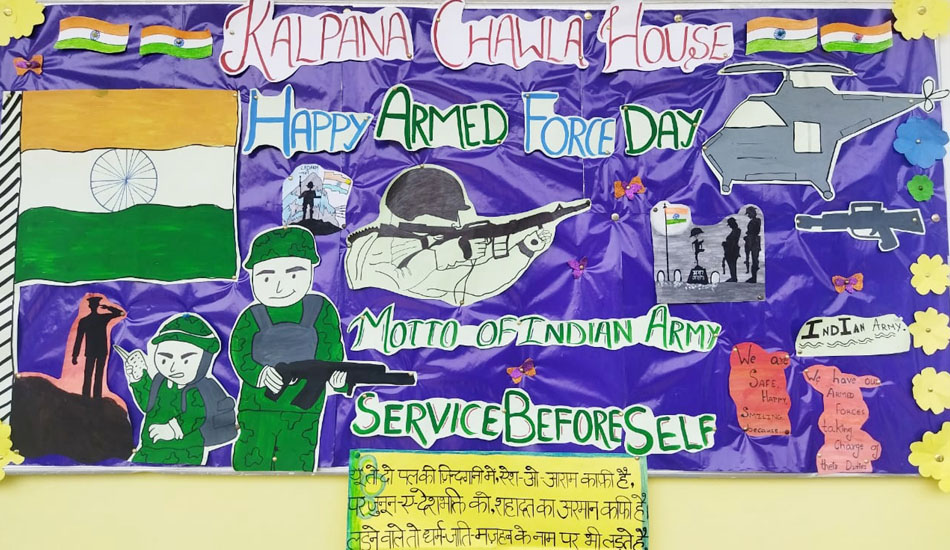 KALPANA CHAWLA HOUSE
HAPPY ARMED FORCE DAY
LADAKH
MOTTO OF INDIAN ARMY
SERVICE BEFORE SELF
INDIAN ARMY.
We are
SAFE,
HAPPY
SMILING
because
We have our
ARMED
FORCES
taking
Charge of
their Duties
यूं तो दो पल की जिंदगानी में, ऐश-ओ-आराम काफी है,
पर जुनून-ए-देशभक्ति को, शहादत का अरमान काफी है
लड़ने वाले तो धर्म-जाति-मज़हब के नाम पर भी लड़ते है